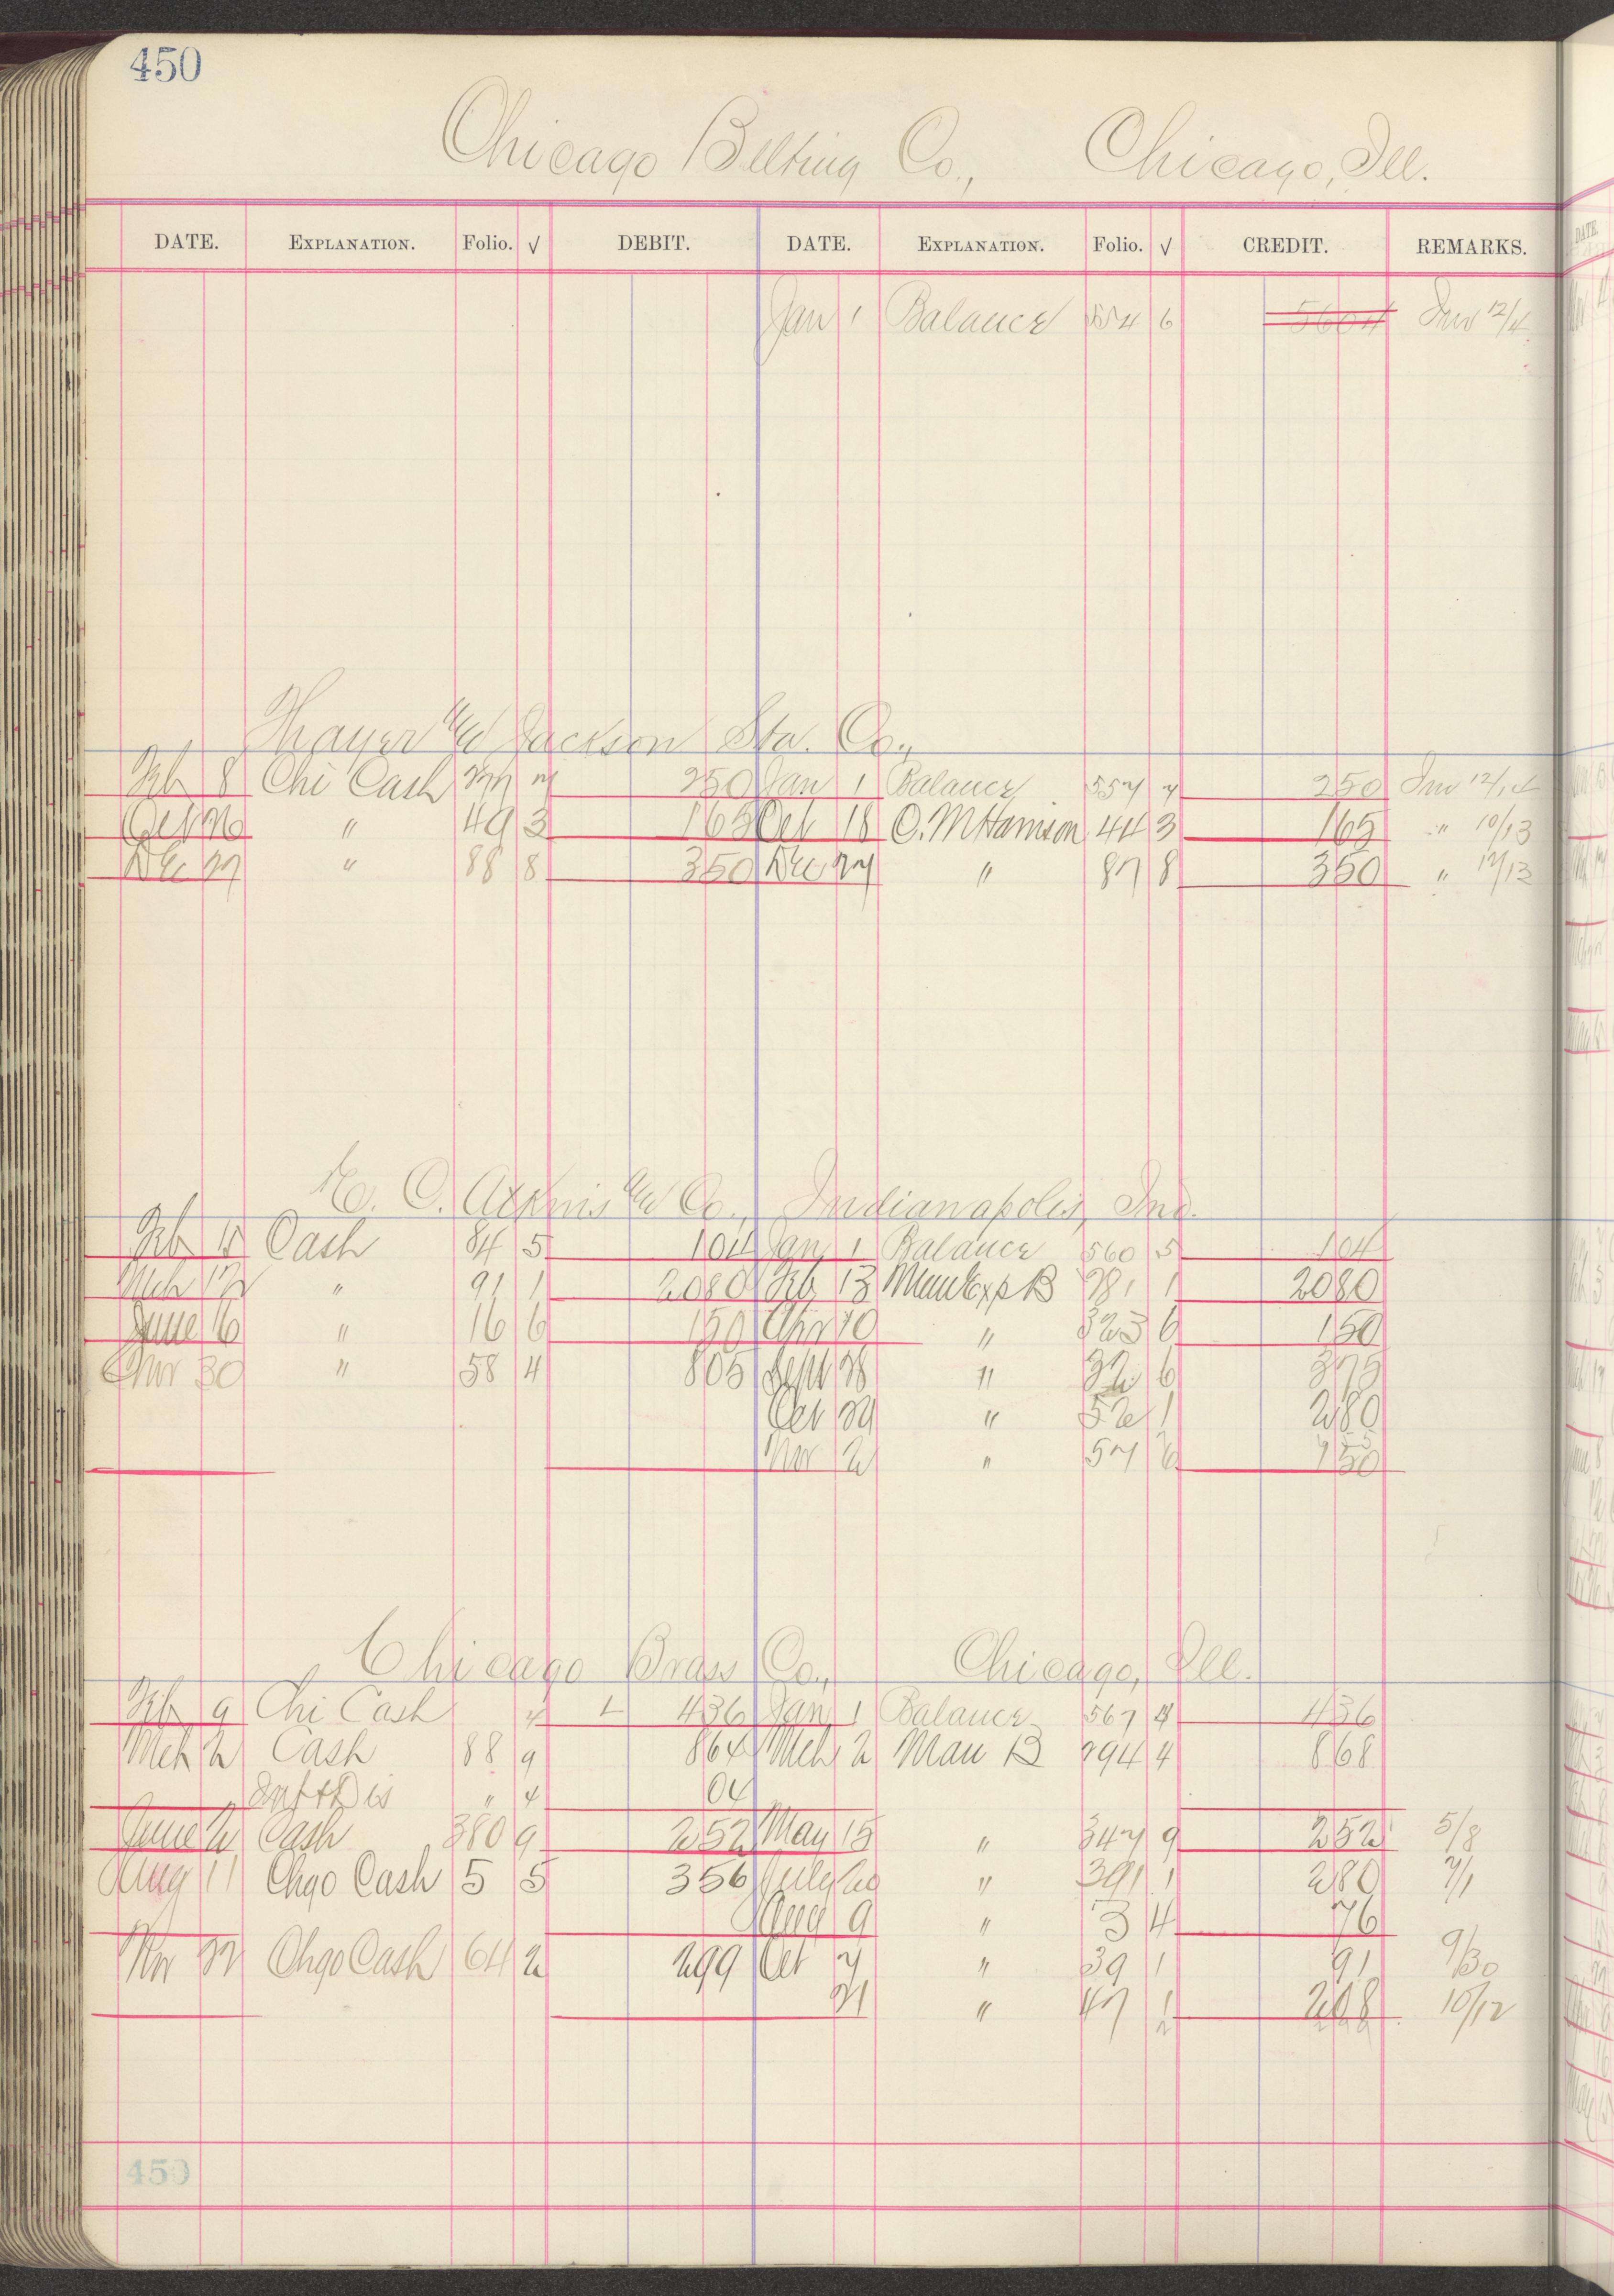 450
Chicago Belting Co., Chicago, Ill.
DATE. EXPLANATION. Folio. √ DEBIT. DATE. EXPLANATION. Folio. √ CREDIT. REMARKS.
Jan 1 Balance 554 6 5604 Inv 12/4
Thayer & Jackson Sta. Co.,
Feb 8 Chi Cash 250 Jan 1 Balance 557 7 250 Inv 12/14
Oct 26 " 49 3 165 Oct 18 C. M Harrison 44 3 165 " 10/13
Dec 27 " 88 8 350 Dec 27 " 87 8 350 " 12/13
E. C. Atkins & Co., Indianapolis, Ind.
Feb 15 Cash 84 5 104 Jan 1 Balance 560 5 104
Mch 12 " 91 1 2080 Feb 13 Man Exp B 281 1 2080
June 16 " 16 6 150 Apr 20 " 323 6 150
Nov 30 " 58 4 805 Sept 28 " 32 6 375
Oct 29 " 52 1 280
Nov 2 " 57 6 150
Chicago Brass Co., Chicago, Ill.
Feb 9 Chi Cash 4 L 436 Jan 1 Balance 567 4 436
Mch 2 Cash 88 9 864 Mch 2 Man B 294 4 868
Int & Dis " 4 04
June 2 Cash 380 9 252 May 15 " 347 9 252 5/8
Aug 11 Chgo Cash 5 5 356 July 20 " 391 1 280 7/1
Aug 9 " 3 4 76
Nov 22 Chgo Cash 64 2 299 Oct 7 " 39 1 91 9/30
21 " 47 1 208 10/12
450